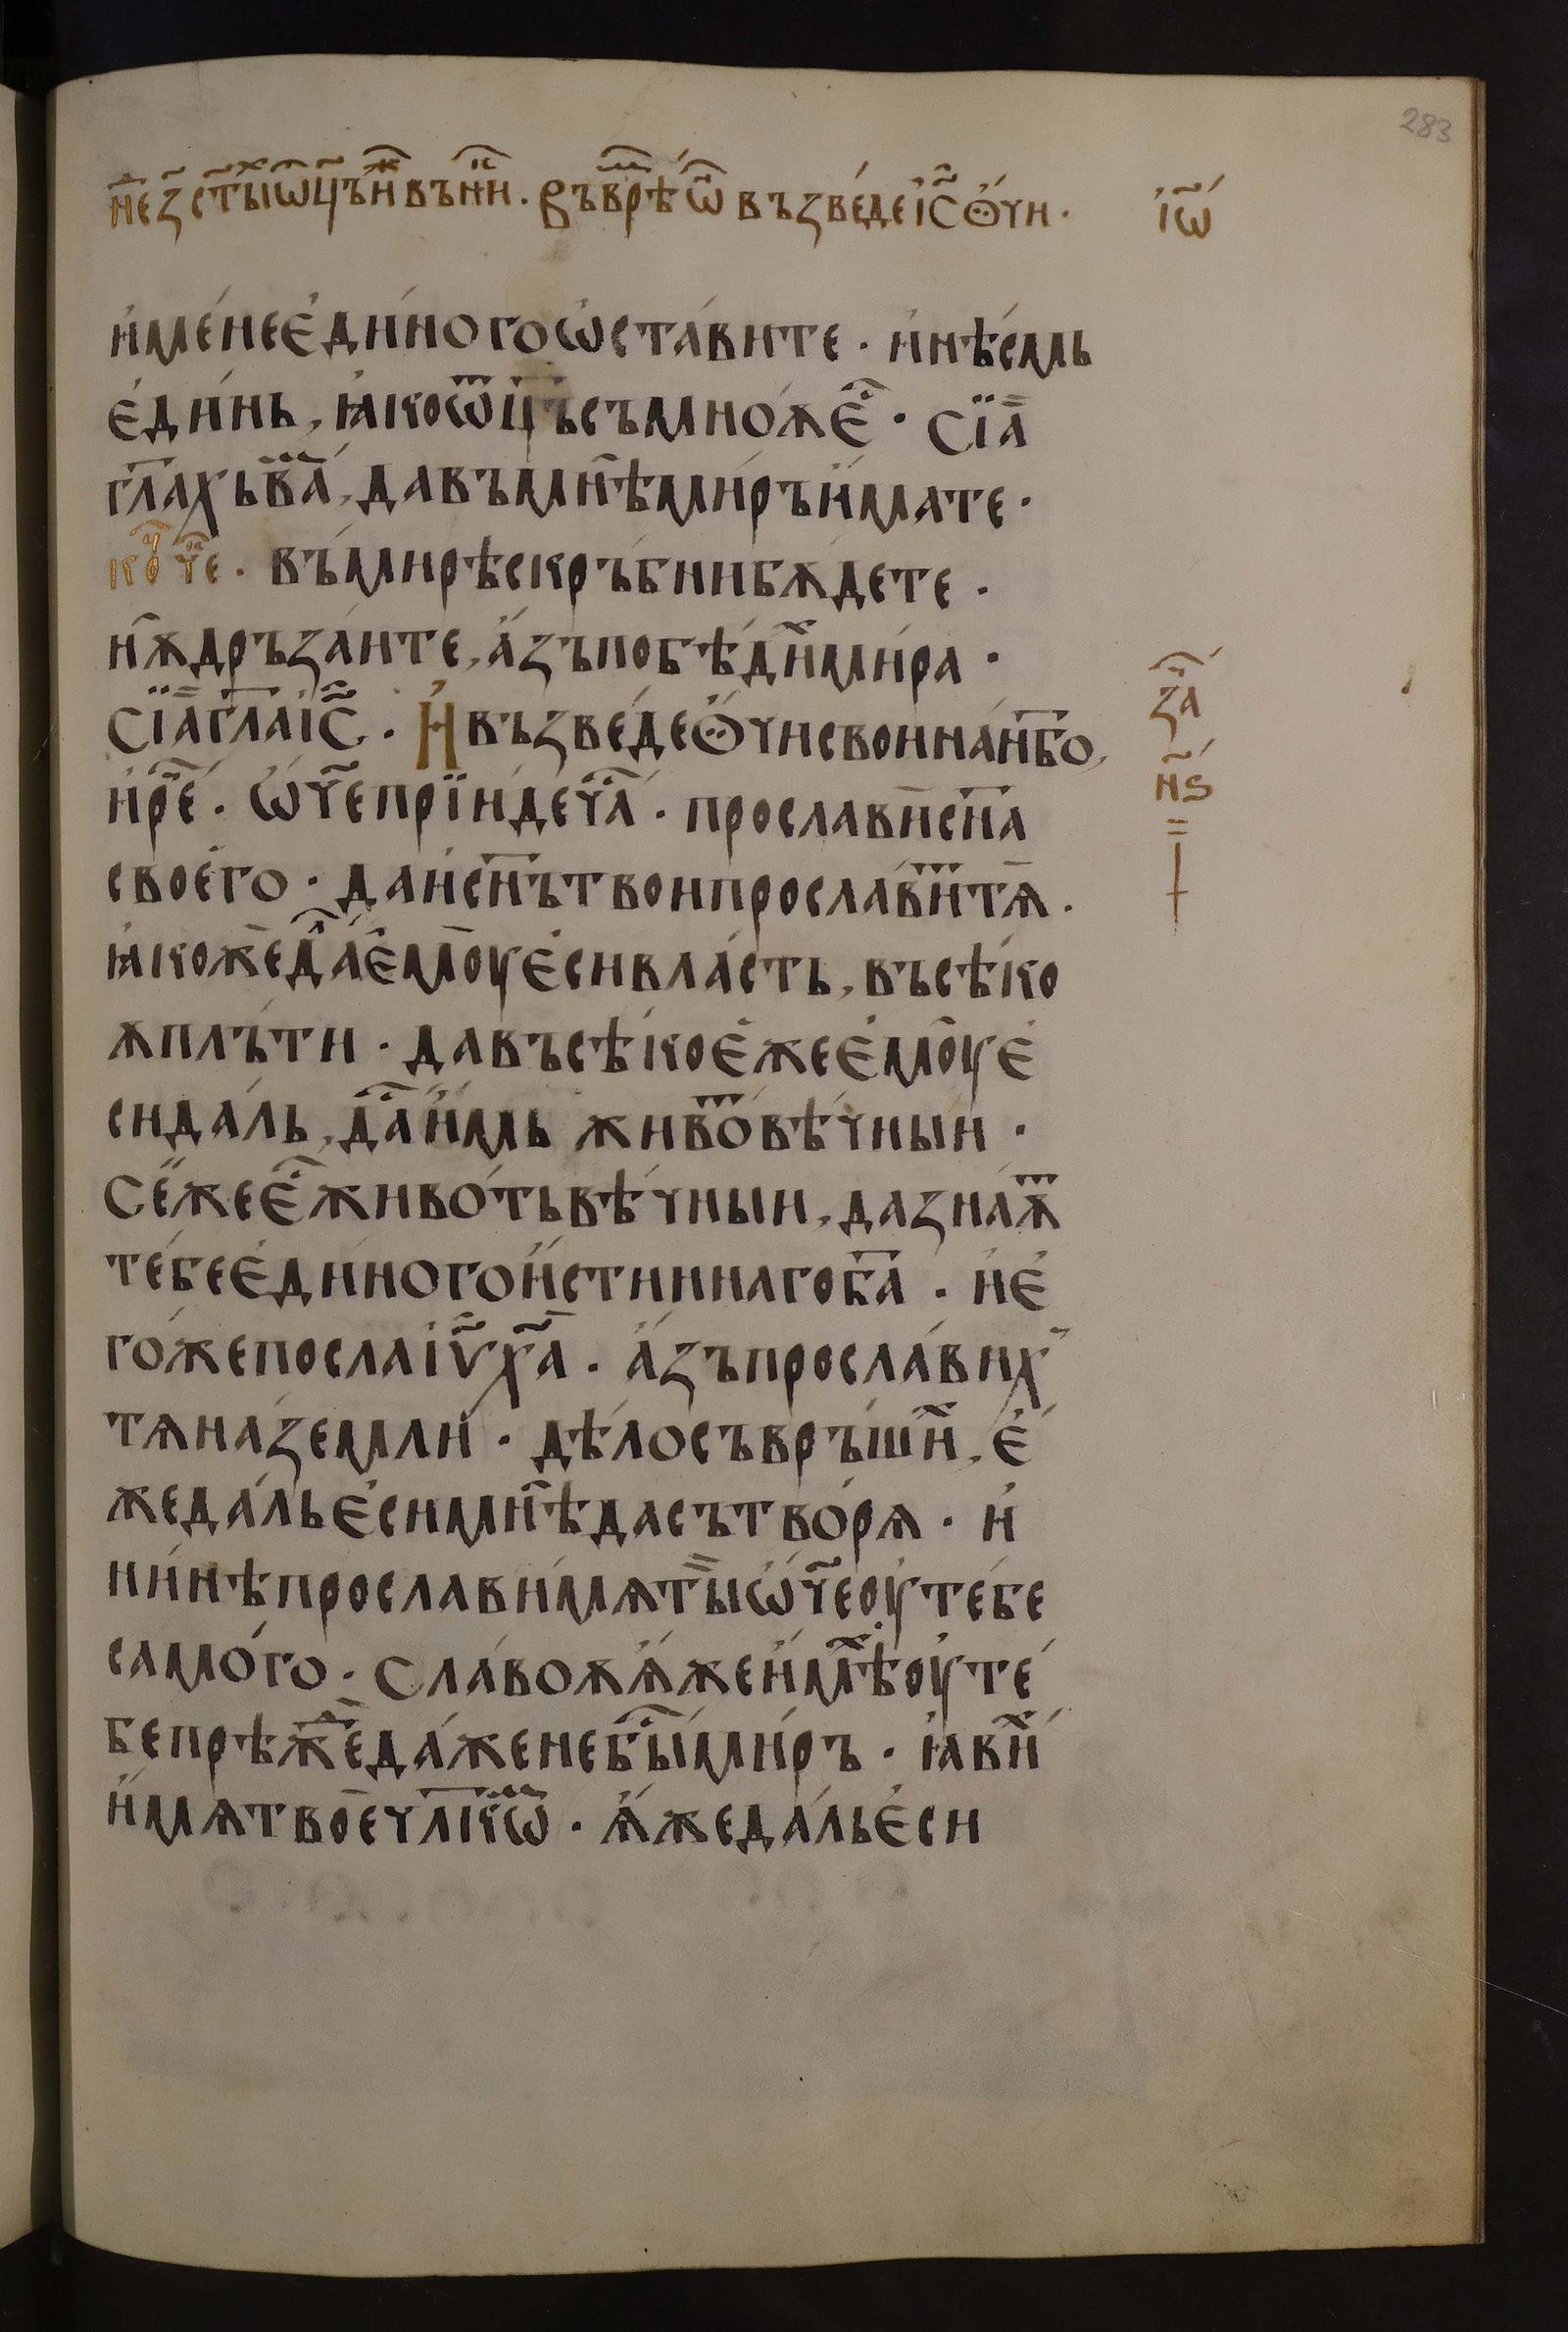 283
н҃е з҃ ст҃ы́хⷯ ѡ҃ц҃ъ и҃ж въ ни҃к҃. Въ врѣ́ ѡ҃ възве́де і҃с ѻ́чи. і҃ѡ
и҆ мене є҆ди́ного ѡ҆ста́вите. и҆ нѣ́смь
є҆ди́нь, ꙗ҆ко ѡ҃ц҃ъ съ мноѫ є҆ⷭ. Сїа҄
гл҃ахь ва̑, да въ мн҄ѣ ми́ръ и҆мате.
ко҃ⷱ че҃. въ мирѣ скръ́бни бѫдете.
нѫ дръза́ите, а҆зъ побѣди́хⷯ ми́ра.
Сїа҄ гл҃а і҃с. И҆ възве́де ѻ҆чи свои на н҃бо,
и҆ ре́ⷱ. ѡ҆ч҃е прїи́де ча́ⷭ. прослави сн҃а
своего̀. да и҆ сн҃ъ твои просла́вит тѧ.
ꙗ҆коже да́лⷧ є҆моу є҆си вла́сть, въсѣ́ко
ѫ плъ́ти. да въсѣ́ко є҆же є҆моу є҆
си да́ль, да́ⷭ и҆мь живо́ⷮ вѣ́чныи.
Се́ же є҆ⷭ живо́ть вѣ́чныи, да зна́ѫⷮ
те́бе є҆ди́ного и҆стиннаго б҃а. и҆ є҆
го́же посла і҃ѵ х҃а. а҆зъ просла́вих
тѧ на землѝ. дѣ́ло съвръши́хⷯ, є҆́
же да́ль є҆си мн҄ѣ да сътво́рѧ. и҆
ни́нѣ прослави мѧ ты̀ ѡ҆ч҃е оу те́бе
самого̀. Сла́воѫ ѫ҆же и҆мѣ́хⷯ оу те́
бе прѣ́жⷣе да́же не бы́ⷭ ми́ръ. ꙗ҆ви́хⷯ
и҆мѧ твое чл҃кѡⷨ. ѧ҆же да́ль є҆си
за҃ⷱ
н҃ѕ